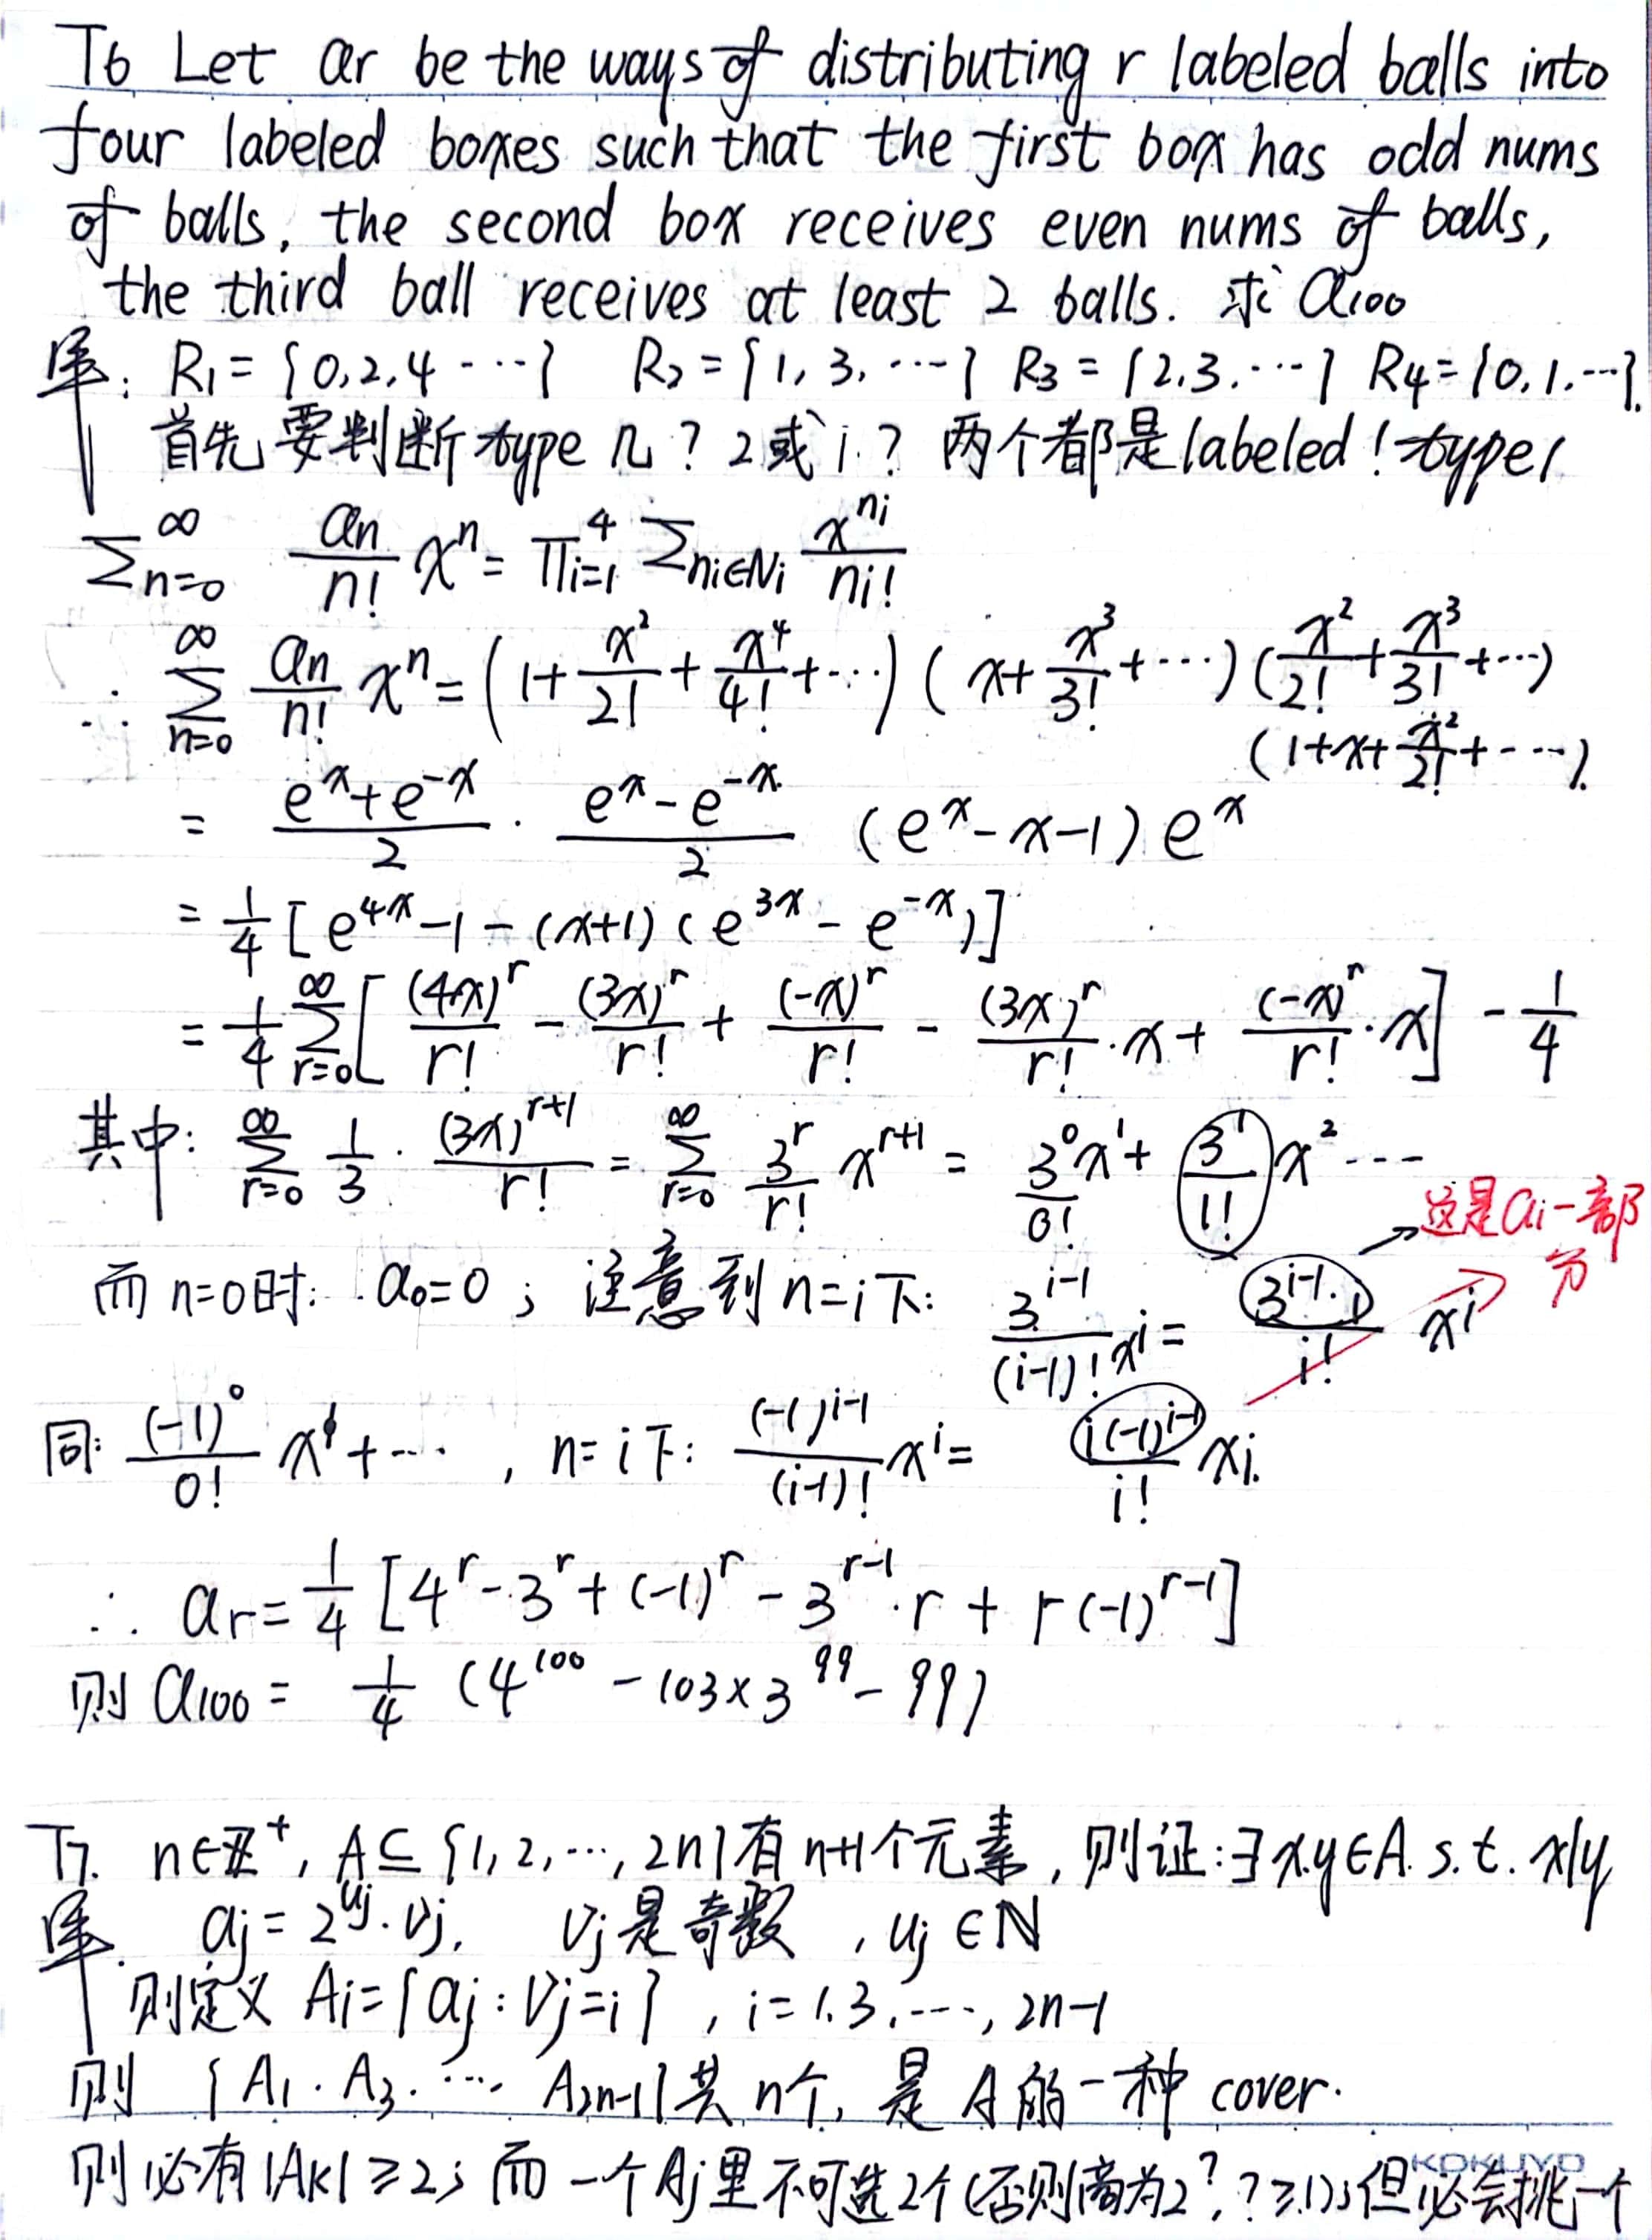 T6 Let ar be the ways of distributing r labeled balls into
four labeled boxes such that the first box has odd nums
of balls, the second box receives even nums of balls,
the third ball receives at least 2 balls. 求 a₁₀₀
解: R₁={0,2,4 ⋯} R₂={1,3,⋯} R₃={2,3,⋯} R₄={0,1,⋯}.
首先要判断type几? 2或1? 两个都是labeled! type1
∑ₙ₌₀^∞ aₙ/n! xⁿ = ∏ᵢ₌₁⁴ ∑_{nᵢ∈Nᵢ} x^{nᵢ}/nᵢ!
∴ ∑ₙ₌₀^∞ aₙ/n! xⁿ = (1+x²/2!+x⁴/4!+⋯)(x+x³/3!+⋯)(x²/2!+x³/3!+⋯)
(1+x+x²/2!+⋯).
= (eˣ+e⁻ˣ)/2 · (eˣ-e⁻ˣ)/2 (eˣ-x-1)eˣ
= 1/4 [e⁴ˣ-1-(x+1)(e³ˣ-e⁻ˣ)]
= 1/4 ∑ᵣ₌₀^∞ [(4x)ʳ/r! - (3x)ʳ/r! + (-x)ʳ/r! - (3x)ʳ/r!·x + (-x)ʳ/r!·x] - 1/4
其中: ∑ᵣ₌₀^∞ 1/3 · (3x)^{r+1}/r! = ∑ᵣ₌₀^∞ 3ʳ/r! x^{r+1} = 3⁰/0! x¹ + 3¹/1! x² ⋯
这是aᵢ一部分
而n=0时: a₀=0; 注意到n=i下: 3^{i-1}/(i-1)! xⁱ = 3^{i-1}·i/i! xⁱ
同: (-1)⁰/0! x¹+⋯, n=i下: (-1)^{i-1}/(i-1)! xⁱ = i(-1)^{i-1}/i! xⁱ.
∴ aᵣ = 1/4 [4ʳ-3ʳ+(-1)ʳ-3^{r-1}·r+r(-1)^{r-1}]
则 a₁₀₀ = 1/4 (4¹⁰⁰-103×3⁹⁹-99)
T7. n∈ℤ⁺, A⊆{1,2,⋯,2n}有n+1个元素, 则证:∃x,y∈A. s.t. x|y
解. aⱼ=2^{uⱼ}·vⱼ, vⱼ是奇数, uⱼ∈ℕ
则定义 Aᵢ={aⱼ:vⱼ=i}, i=1,3,⋯,2n-1
则 {A₁,A₃,⋯ A₂ₙ₋₁}共n个, 是A的一种cover.
则必有|Aₖ|≥2; 而一个Aⱼ里不可选2个(否则商为2^?,?≥1);但必会挑一个
KOKUYO